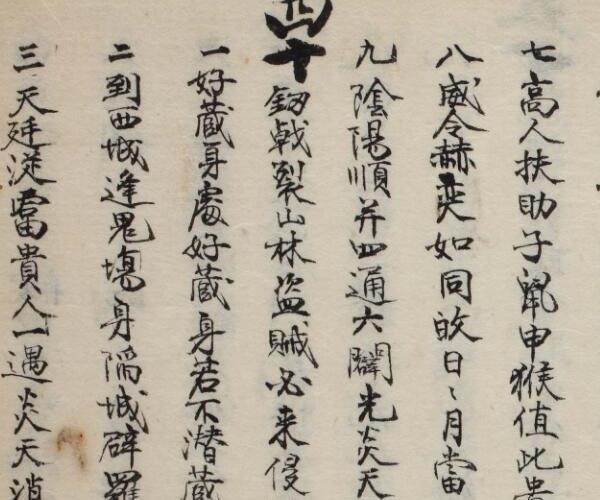 七高人扶助子鼠申猴值此貴
八威令赫奕如同皎日〻月當
九陰陽順并四通六闢光炎天
四十劔戟裂山林盜賊必来侵
一好蔵身處好蔵身若不潜蔵
二到西城逢鬼塲身陷城辟羅
三天廷従富貴人一遇炎天消